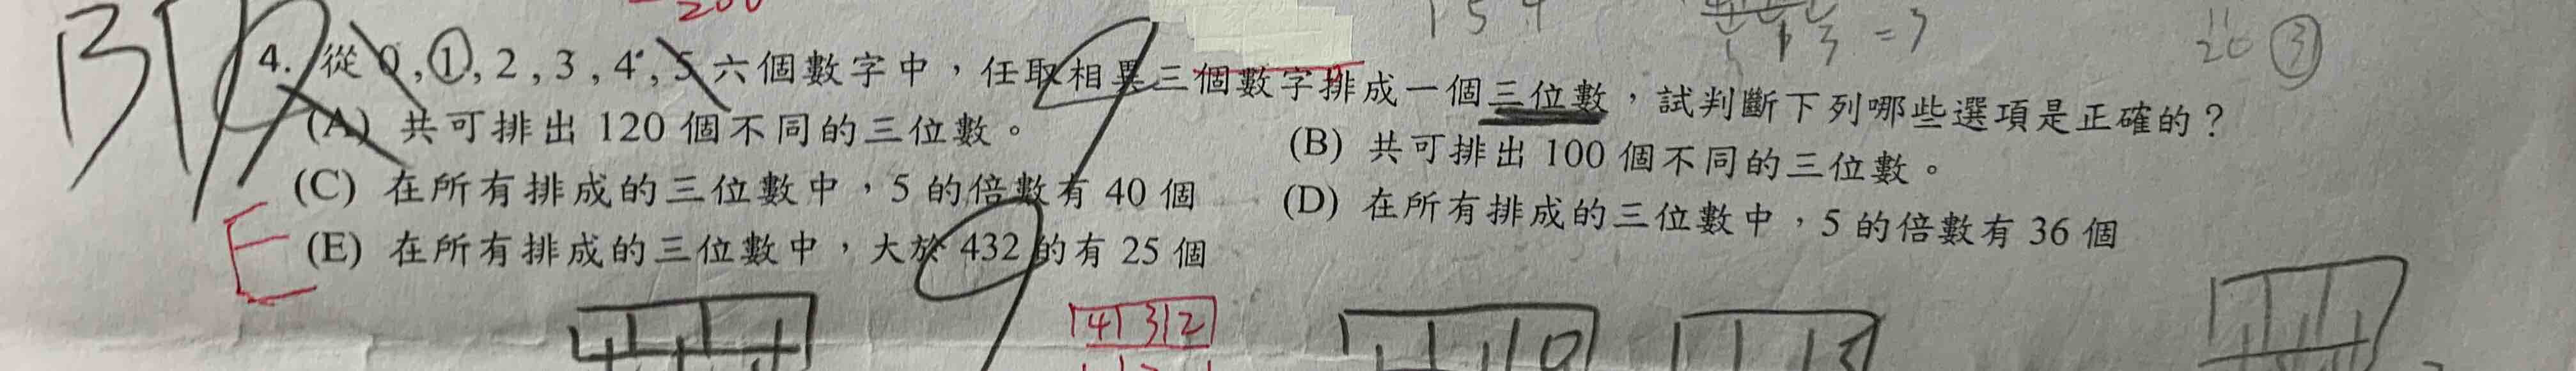 200
1 5 4
1 3 = 3
20 ③
BD
4. 從 0 , ① , 2 , 3 , 4 , 5 六個數字中，任取相異三個數字排成一個三位數，試判斷下列哪些選項是正確的？
(A) 共可排出 120 個不同的三位數。
(B) 共可排出 100 個不同的三位數。
(C) 在所有排成的三位數中，5 的倍數有 40 個
(D) 在所有排成的三位數中，5 的倍數有 36 個
E
(E) 在所有排成的三位數中，大於 432 的有 25 個
4 3 2
0